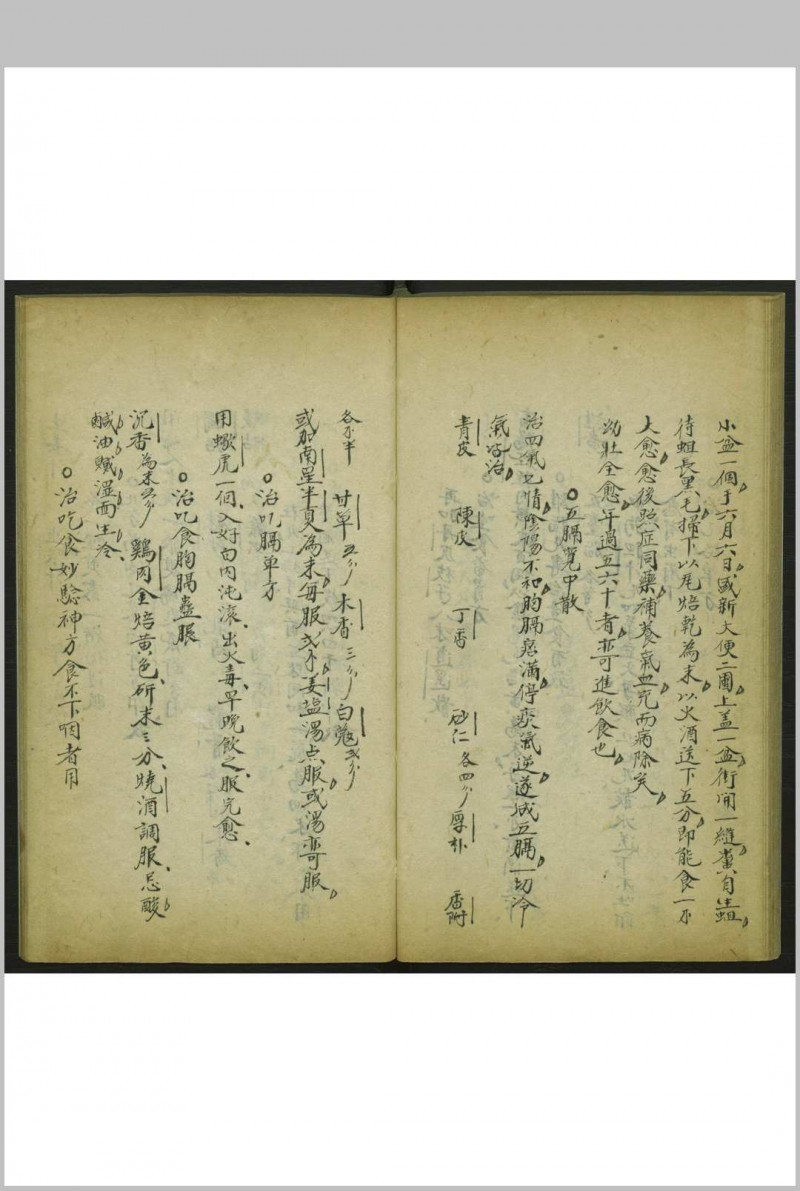 小盆一個于六月六日盛新大便二圊上盖一盆衔闻一縫糞自生蛆
待蛆長黑毛掃下以尾焙乾為末以火酒送下五分即能食一不
大愈愈後照症同藥補养氣血充而病除矣
幼壯全愈年過五六十者亦可進飲食也
○五膈寬中散
治四氣七情陰陽不和胸膈痞滿停痰氣逆遂成五膈一切冷
氣皆治
青皮 陳皮 丁香 砂仁各四 厚朴 香附
各 半 甘草五 木香三 白蔻
或加南星半夏為末每服 姜盐湯点服或湯亦服
○治吃膈單方
用蠍虎一個入好白内沌滚出火毒早晚飲之服完愈
○治吃食胸膈蠱脹
沉香為末 鷄内金焙黄色研末三分燒酒調服忌酸
鹹油腻湿面生冷
○治吃食妙驗神方食不下咽者用